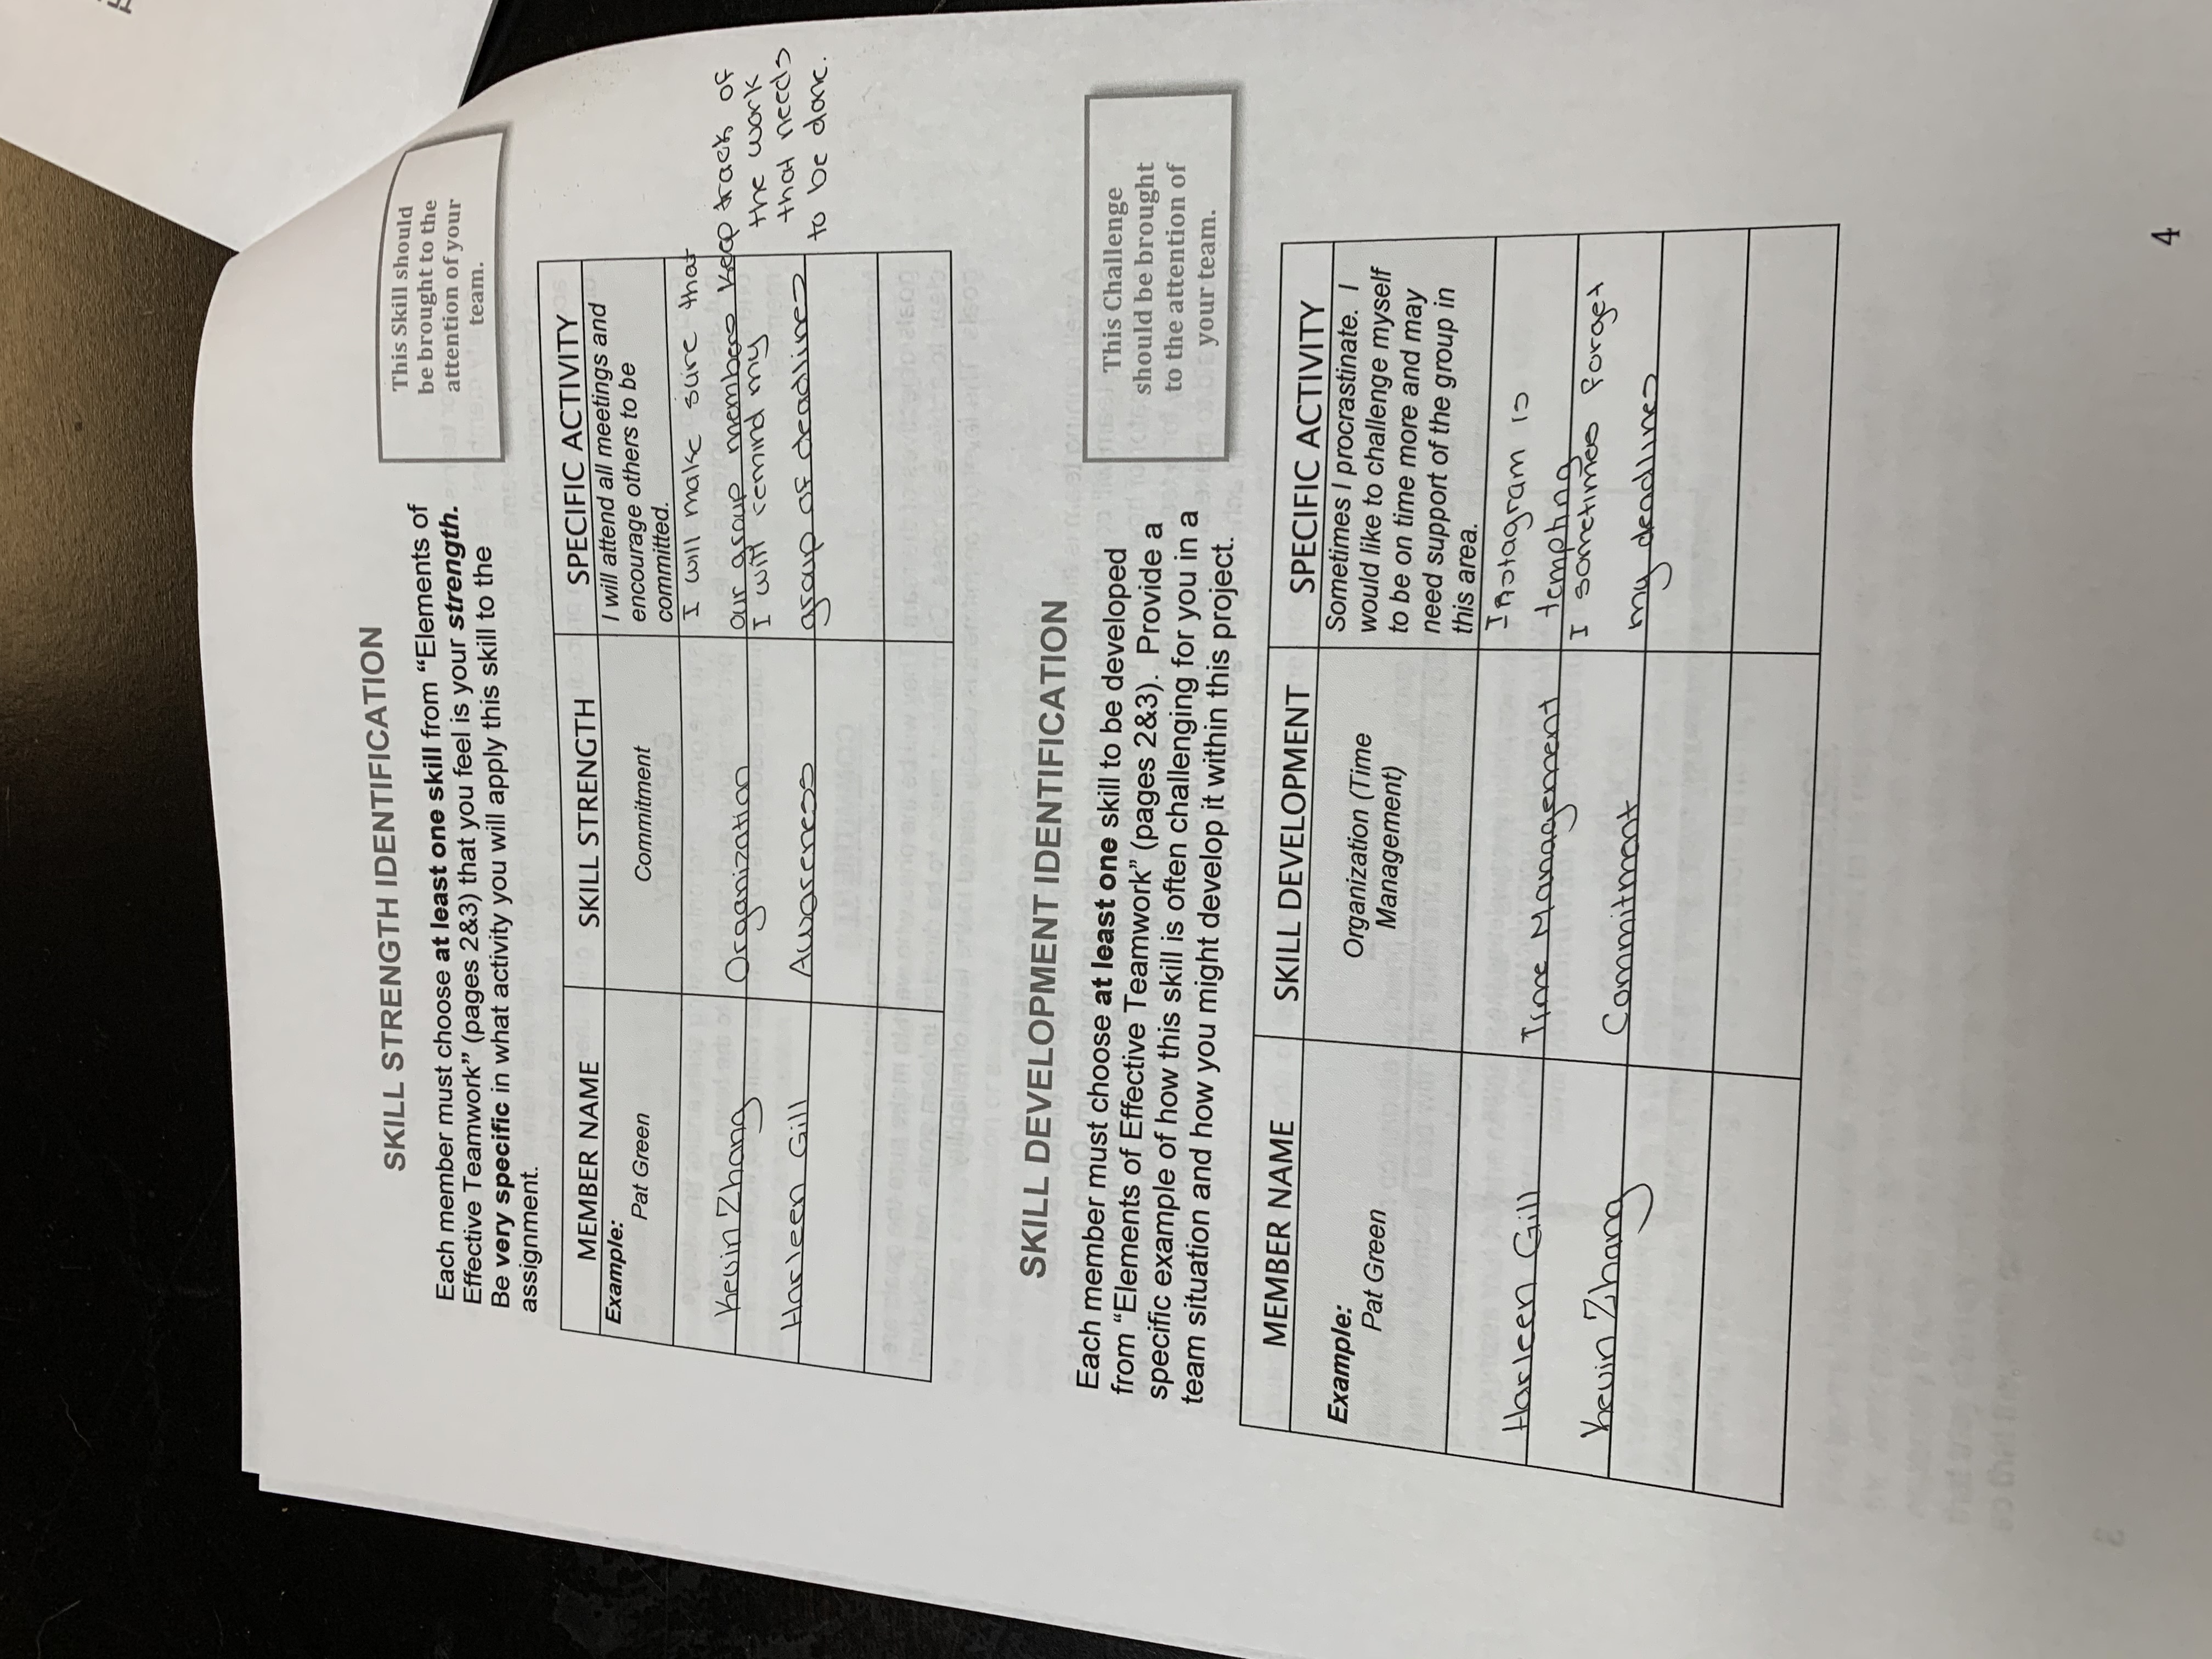 SKILL STRENGTH IDENTIFICATION
Each member must choose at least one skill from “Elements of
Effective Teamwork” (pages 2&3) that you feel is your strength.
Be very specific in what activity you will apply this skill to the
assignment.
This Skill should
be brought to the
attention of your
team.
MEMBER NAME SKILL STRENGTH SPECIFIC ACTIVITY
Example:
Pat Green
Commitment
I will attend all meetings and
encourage others to be
committed.
Kevin Zhang
Organization
I will make sure that
our group members keep track of
the work
that needs
to be done.
Harleen Gill
Awareness
I will remind my
group of deadlines
SKILL DEVELOPMENT IDENTIFICATION
Each member must choose at least one skill to be developed
from “Elements of Effective Teamwork” (pages 2&3). Provide a
specific example of how this skill is often challenging for you in a
team situation and how you might develop it within this project.
This Challenge
should be brought
to the attention of
your team.
MEMBER NAME SKILL DEVELOPMENT SPECIFIC ACTIVITY
Example:
Pat Green
Organization (Time
Management)
Sometimes I procrastinate. I
would like to challenge myself
to be on time more and may
need support of the group in
this area.
Harleen Gill
Time Management
Instagram is
tempting
Kevin Zhang
Commitment
I sometimes forget
my deadlines
4